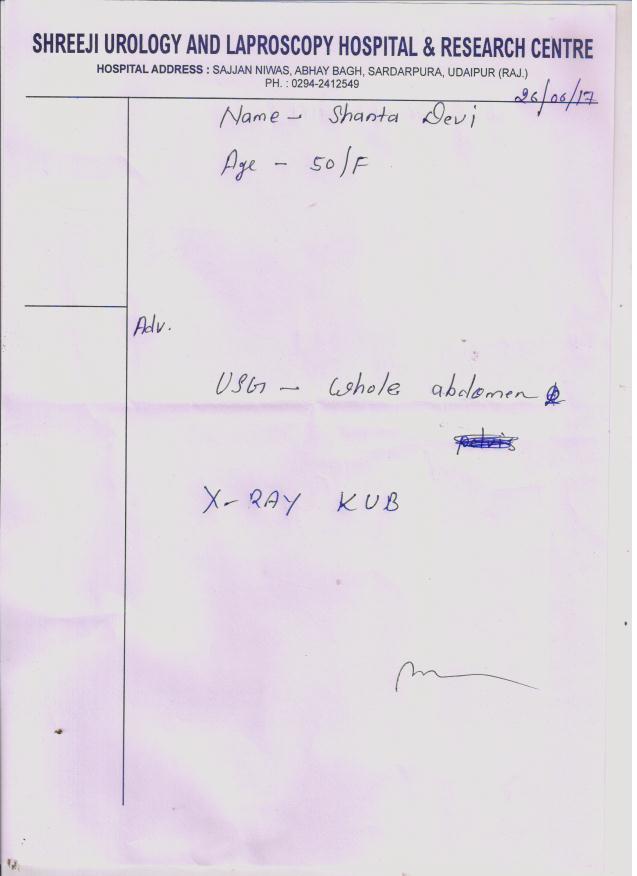 SHREEJI UROLOGY AND LAPROSCOPY HOSPITAL & RESEARCH CENTRE
HOSPITAL ADDRESS : SAJJAN NIWAS, ABHAY BAGH, SARDARPURA, UDAIPUR (RAJ.)
PH. : 0294-2412549
26/06/17
Name - Shanta Devi
Age - 50/F
Adv.
USG - Whole abdomen
pelvis
X-RAY KUB